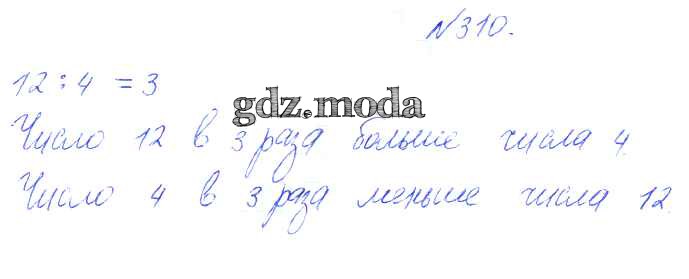 №310.
12 : 4 = 3
gdz.moda
Число 12 в 3 раза больше числа 4.
Число 4 в 3 раза меньше числа 12.